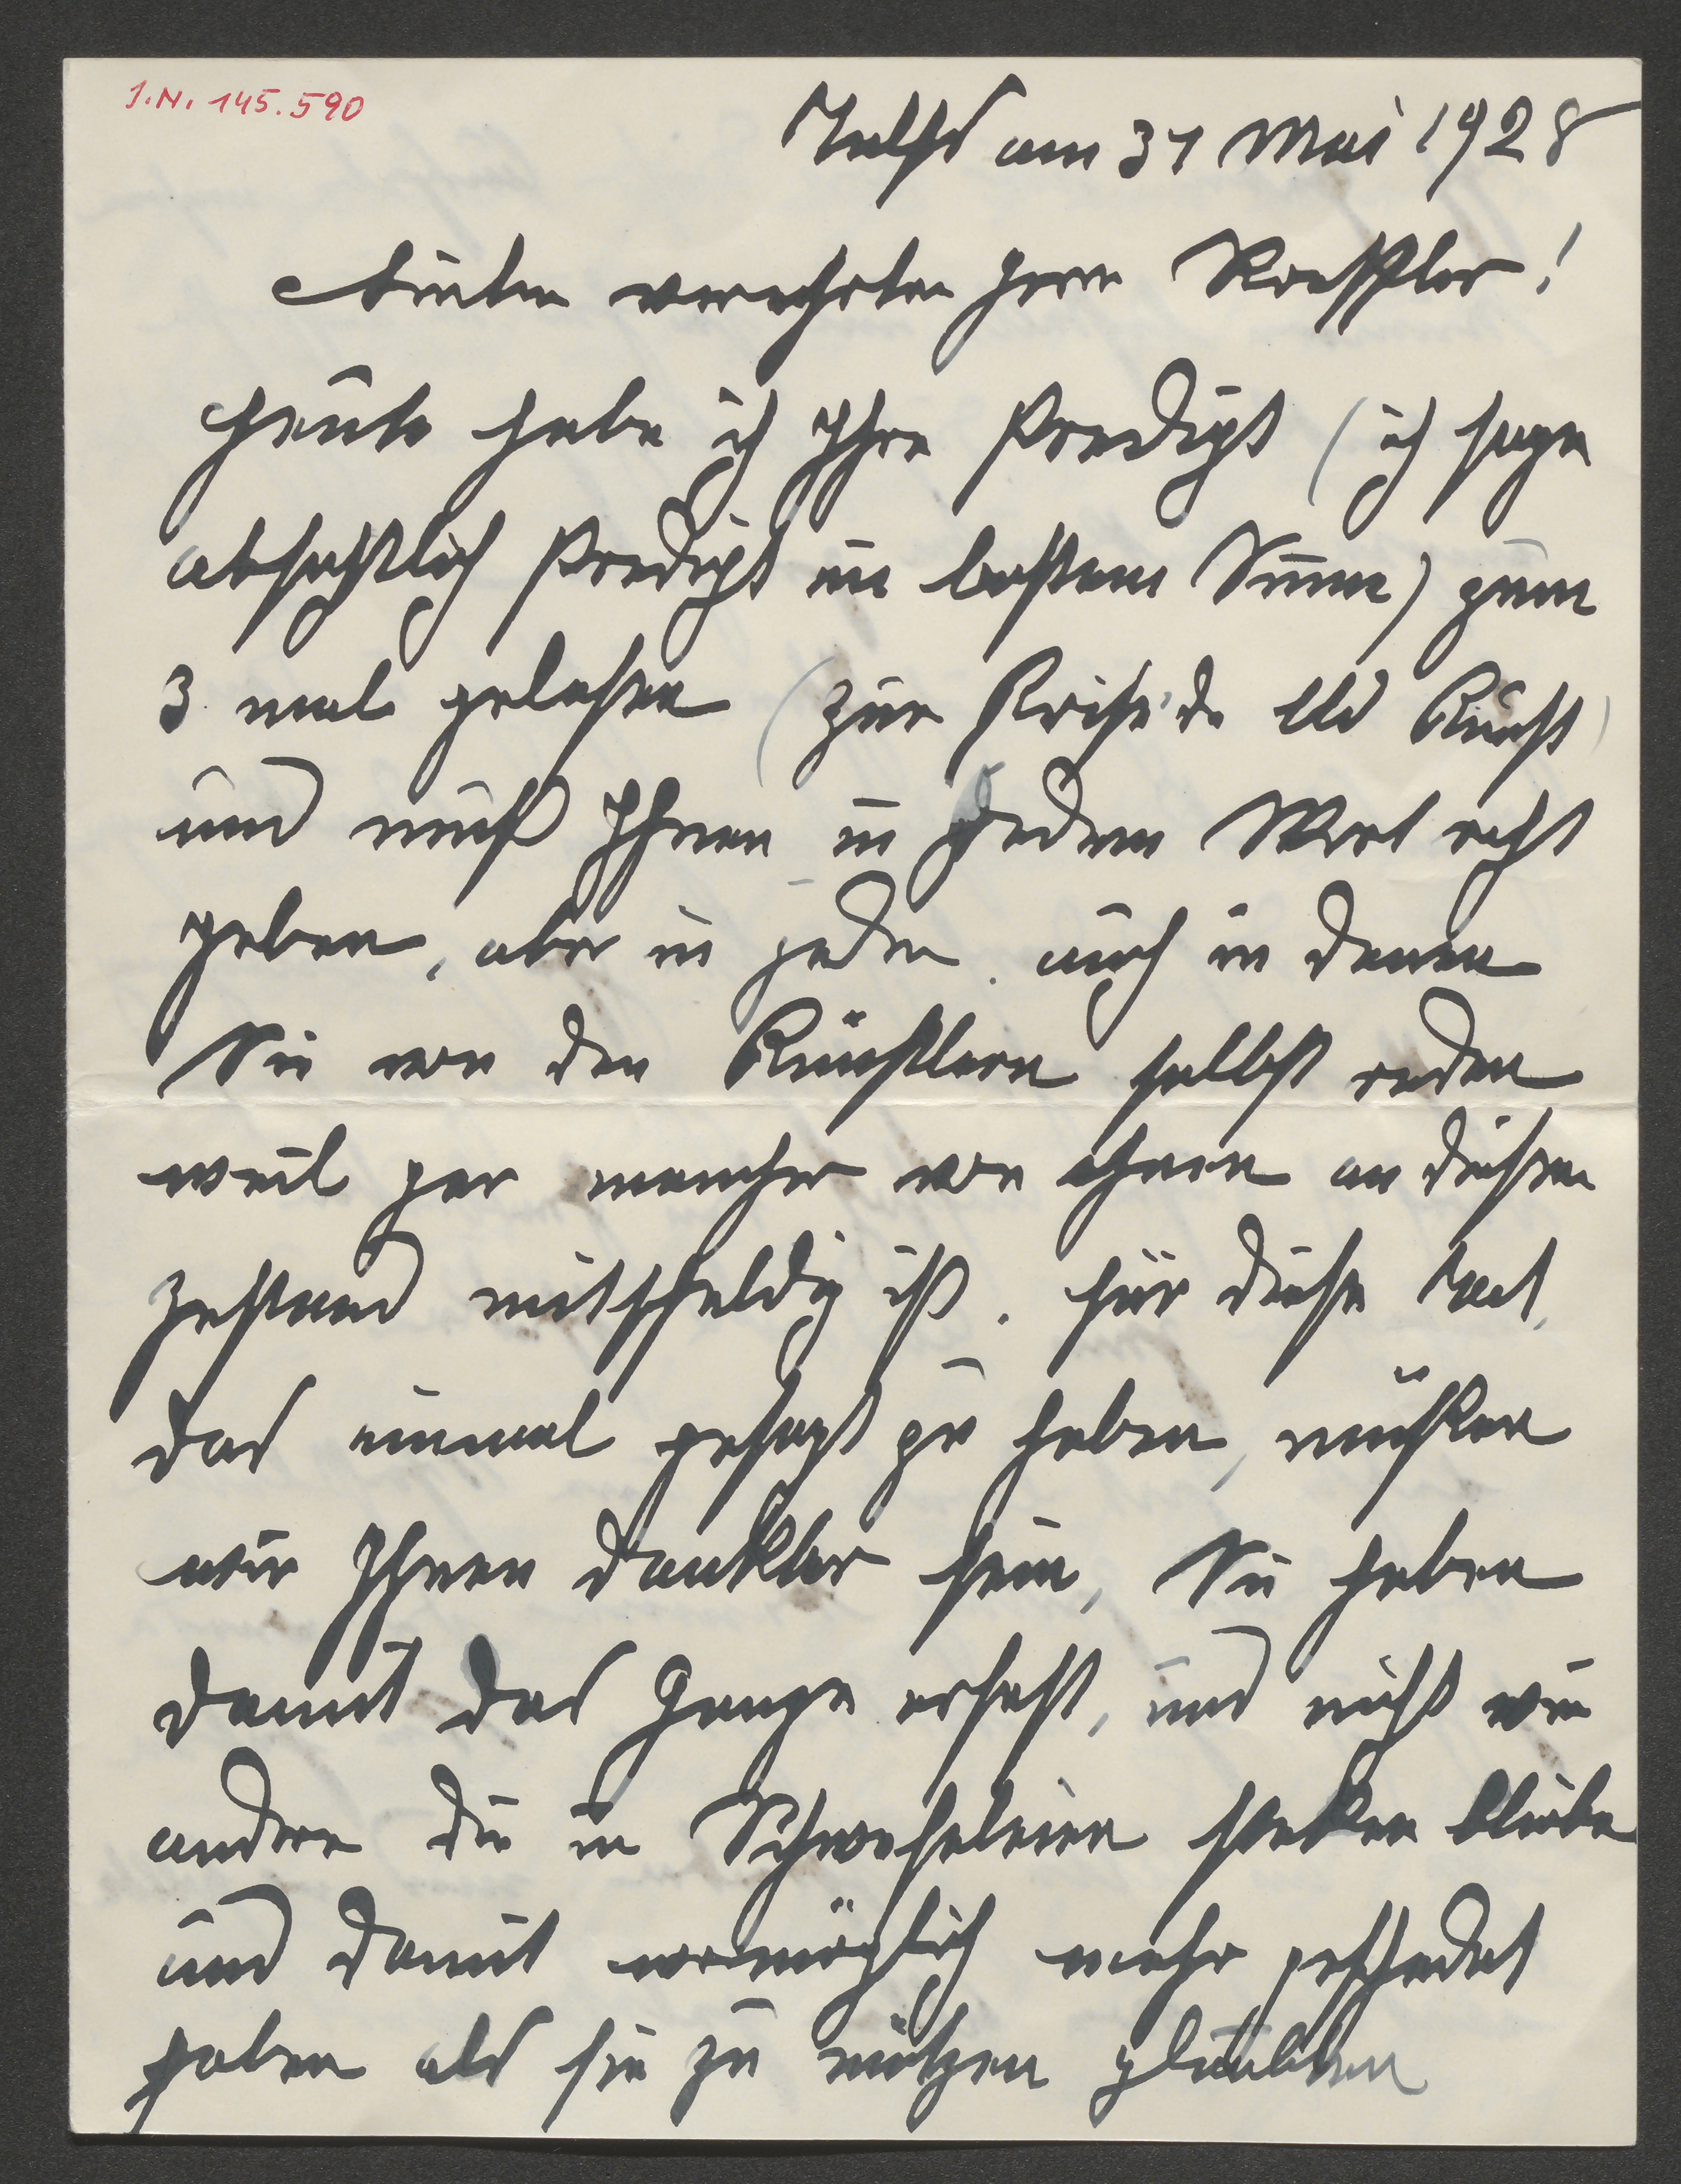 J.N. 145.590
Telfs am 31 Mai 1928
Lieber verehrter Herr Roessler!
Heute habe ich Ihre Predigt (ich sage
absichtlich Predigt im bestem Sinne) zum
3 mal gelesen (zur Krise d. bld Kunst)
und muß Ihnen in jedem Wort recht
geben, aber in jeden. auch in denen
Sie von den Künstlern selbst reden
weil gar mancher von ihnen an diesen
Zustand mitschuldig ist. für diese Tat,
das einmal gesagt zu haben, müssen
wir Ihnen dankbar sein, Sie haben
damit das Ganze erfasst, und nicht wie
andere die in Schwefeleien steken bleiben
und damit womöglich mehr geschadet
haben als sie zu nützen glaubten